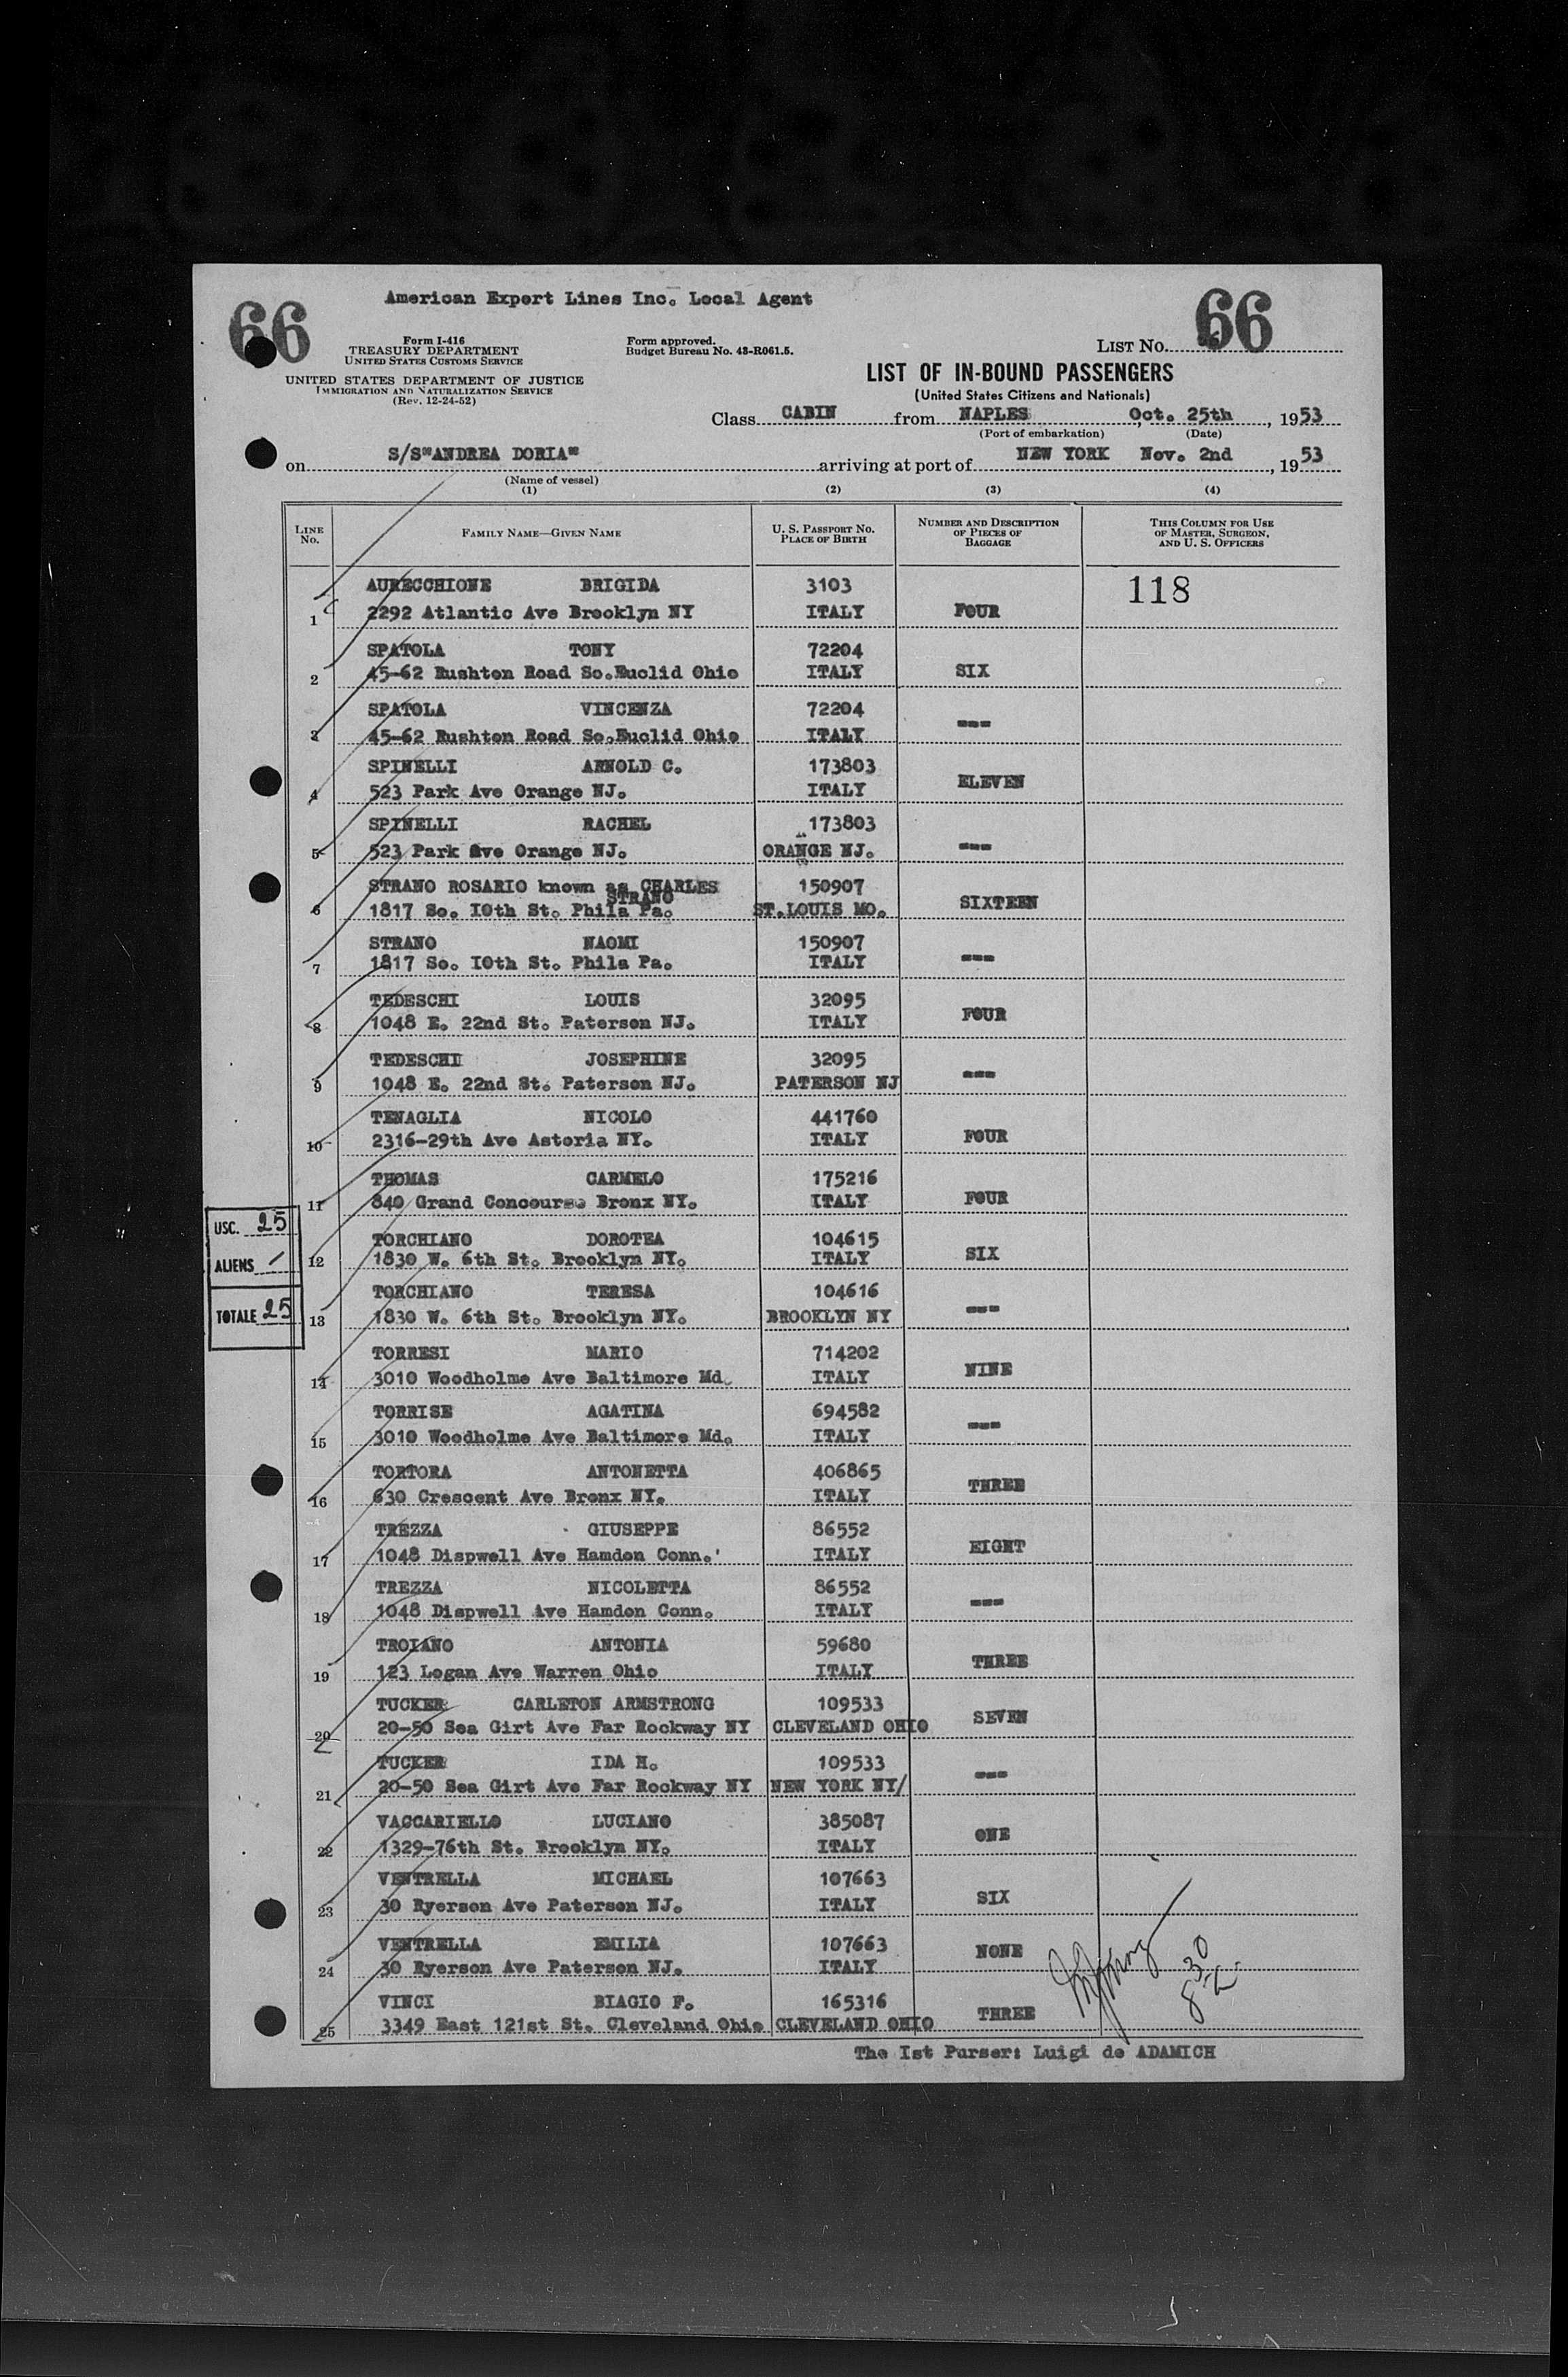 American Export Lines Inc. Local Agent
66 66
Form I-416
TREASURY DEPARTMENT
UNITED STATES CUSTOMS SERVICE
UNITED STATES DEPARTMENT OF JUSTICE
IMMIGRATION AND NATURALIZATION SERVICE
(Rev. 12-24-52)
Form approved.
Budget Bureau No. 43-R061.5.
LIST NO.
LIST OF IN-BOUND PASSENGERS
(United States Citizens and Nationals)
Class CABIN from NAPLES, Oct. 25th, 1953
(Port of embarkation) (Date)
on S/S"ANDREA DORIA" arriving at port of NEW YORK Nov. 2nd, 1953
(Name of vessel)
(1) (2) (3) (4)
LINE NO. FAMILY NAME—GIVEN NAME U. S. PASSPORT NO. PLACE OF BIRTH NUMBER AND DESCRIPTION OF PIECES OF BAGGAGE THIS COLUMN FOR USE OF MASTER, SURGEON, AND U. S. OFFICERS
AURECCHIONE BRIGIDA 3103 118
1 2292 Atlantic Ave Brooklyn NY ITALY FOUR
SPATOLA TONY 72204
2 45-62 Rushton Road So.Euclid Ohio ITALY SIX
SPATOLA VINCENZA 72204
3 45-62 Rushton Road So.Euclid Ohio ITALY ---
SPINELLI ARNOLD C. 173803
4 523 Park Ave Orange NJ. ITALY ELEVEN
SPINELLI RACHEL 173803
5 523 Park Ave Orange NJ. ORANGE NJ. ---
STRANO ROSARIO known as CHARLES 150907
STRANO
6 1817 So. I0th St. Phila Pa. ST.LOUIS MO. SIXTEEN
STRANO NAOMI 150907
7 1817 So. I0th St. Phila Pa. ITALY ---
TEDESCHI LOUIS 32095
8 1048 E. 22nd St. Paterson NJ. ITALY FOUR
TEDESCHI JOSEPHINE 32095
9 1048 E. 22nd St. Paterson NJ. PATERSON NJ ---
TENAGLIA NICOLO 441760
10 2316-29th Ave Astoria NY. ITALY FOUR
THOMAS CARMELO 175216
11 840 Grand Concourse Bronx NY. ITALY FOUR
USC. 25
ALIENS /
TOTALE 25
TORCHIANO DOROTEA 104615
12 1830 W. 6th St. Brooklyn NY. ITALY SIX
TORCHIANO TERESA 104616
13 1830 W. 6th St. Brooklyn NY. BROOKLYN NY ---
TORRESI MARIO 714202
14 3010 Woodholme Ave Baltimore Md. ITALY NINE
TORRISE AGATINA 694582
15 3010 Woodholme Ave Baltimore Md. ITALY ---
TORTORA ANTONETTA 406865
16 630 Crescent Ave Bronx NY. ITALY THREE
TREZZA GIUSEPPE 86552
17 1048 Dispwell Ave Hamden Conn.' ITALY EIGHT
TREZZA NICOLETTA 86552
18 1048 Dispwell Ave Hamden Conn. ITALY ---
TROIANO ANTONIA 59680
19 123 Logan Ave Warren Ohio ITALY THREE
TUCKER CARLETON ARMSTRONG 109533
20 20-50 Sea Girt Ave Far Rockway NY CLEVELAND OHIO SEVEN
TUCKER IDA H. 109533
21 20-50 Sea Girt Ave Far Rockway NY NEW YORK NY/ ---
VACCARIELLO LUCIANO 385087
22 1329-76th St. Brooklyn NY. ITALY ONE
VENTRELLA MICHAEL 107663
23 30 Ryerson Ave Paterson NJ. ITALY SIX
VENTRELLA EMILIA 107663
24 30 Ryerson Ave Paterson NJ. ITALY NONE
VINCI BIAGIO F. 165316
25 3349 East 121st St. Cleveland Ohio CLEVELAND OHIO THREE
The Ist Purser: Luigi de ADAMICH